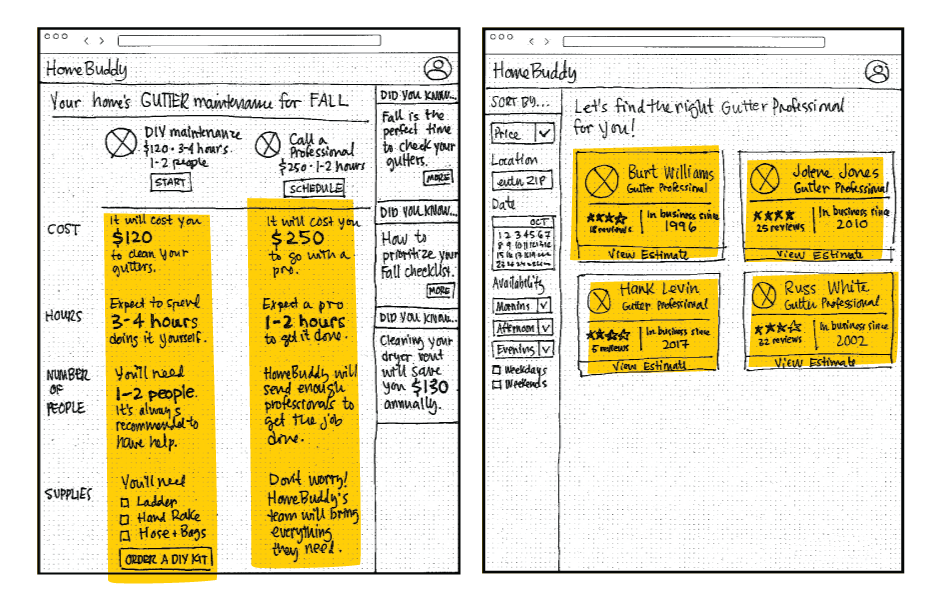 HomeBuddy
Your home's GUTTER maintenance for FALL
DIY maintenance
$120 · 3-4 hours
1-2 people
START
Call a
Professional
$250 · 1-2 hours
SCHEDULE
COST
It will cost you
$120
to clean your
gutters.
It will cost you
$250
to go with a
pro.
HOURS
Expect to spend
3-4 hours
doing it yourself.
Expect a pro
1-2 hours
to get it done.
NUMBER
OF
PEOPLE
You'll need
1-2 people.
It's always
recommended to
have help.
HomeBuddy will
send enough
professionals to
get the job
done.
SUPPLIES
You'll need
Ladder
Hand Rake
Hose + Bags
ORDER A DIY KIT
Don't worry!
HomeBuddy's
team will bring
everything
they need.
DID YOU KNOW...
Fall is the
perfect time
to check your
gutters.
MORE
DID YOU KNOW...
How to
prioritize your
Fall checklist.
MORE
DID YOU KNOW...
Cleaning your
dryer vent
will save
you $130
annually.
HomeBuddy
SORT BY...
Price
Location
enter ZIP
Date
OCT
1 2 3 4 5 6 7
8 9 10 11 12 13 14
Availability
Morning
Afternoon
Evening
Weekdays
Weekends
Let's find the right Gutter Professional
for you!
Burt Williams
Gutter Professional
18 reviews
In business since
1996
View Estimate
Jolene Jones
Gutter Professional
25 reviews
In business since
2010
View Estimate
Hank Levin
Gutter Professional
5 reviews
In business since
2017
View Estimate
Russ White
Gutter Professional
22 reviews
In business since
2002
View Estimate